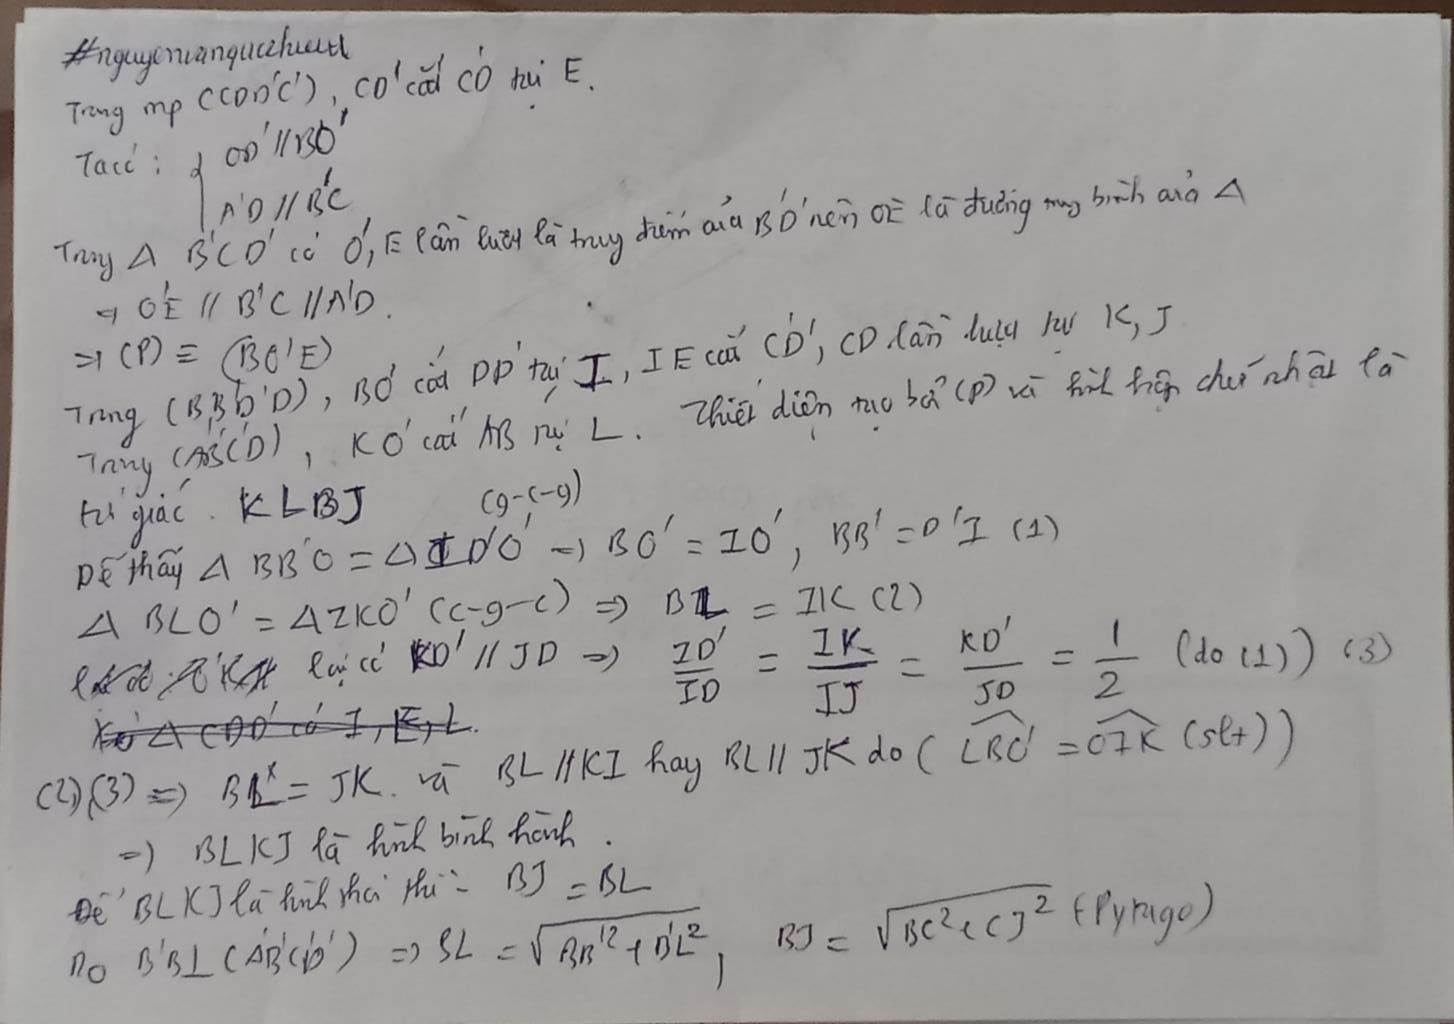 #nguyenvanquachuutl
Trong mp (CDD'C'), CD' cắt C'D tại E.
Ta có: { OD' // BO'
A'D // B'C
Trong Δ B'CD' có O', E lần lượt là trung điểm của B'D' nên O'E là đường trung bình của Δ
⇒ O'E // B'C // A'D.
⇒ (P) ≡ (BO'E)
Trong (BB'D'D), BO' cắt DD' tại I, IE cắt C'D', CD lần lượt tại K, J
Trong (A'B'C'D'), KO' cắt A'B' tại L. Thiết diện tạo bởi (P) và hình hộp chữ nhật là
tứ giác KLBJ (g-c-g)
Dễ thấy Δ BB'O' = Δ ID'O' ⇒ BO' = IO', BB' = D'I (1)
Δ BLO' = Δ IKO' (c-g-c) ⇒ BL = IK (2)
lại có KD' // JD ⇒ ID'/ID = IK/IJ = KD'/JD = 1/2 (do (1)) (3)
Xét Δ CDD' có I, E, L.
(2),(3) ⇒ BL = JK. và BL // KI hay BL // JK do (LBO' = O'IK (slt))
⇒ BLKJ là hình bình hành.
Để BLKJ là hình thoi thì: BJ = BL
Do B'B ⊥ (A'B'C'D') ⇒ BL = √(BB'² + B'L²), BJ = √(BC² + CJ²) (Pytago)